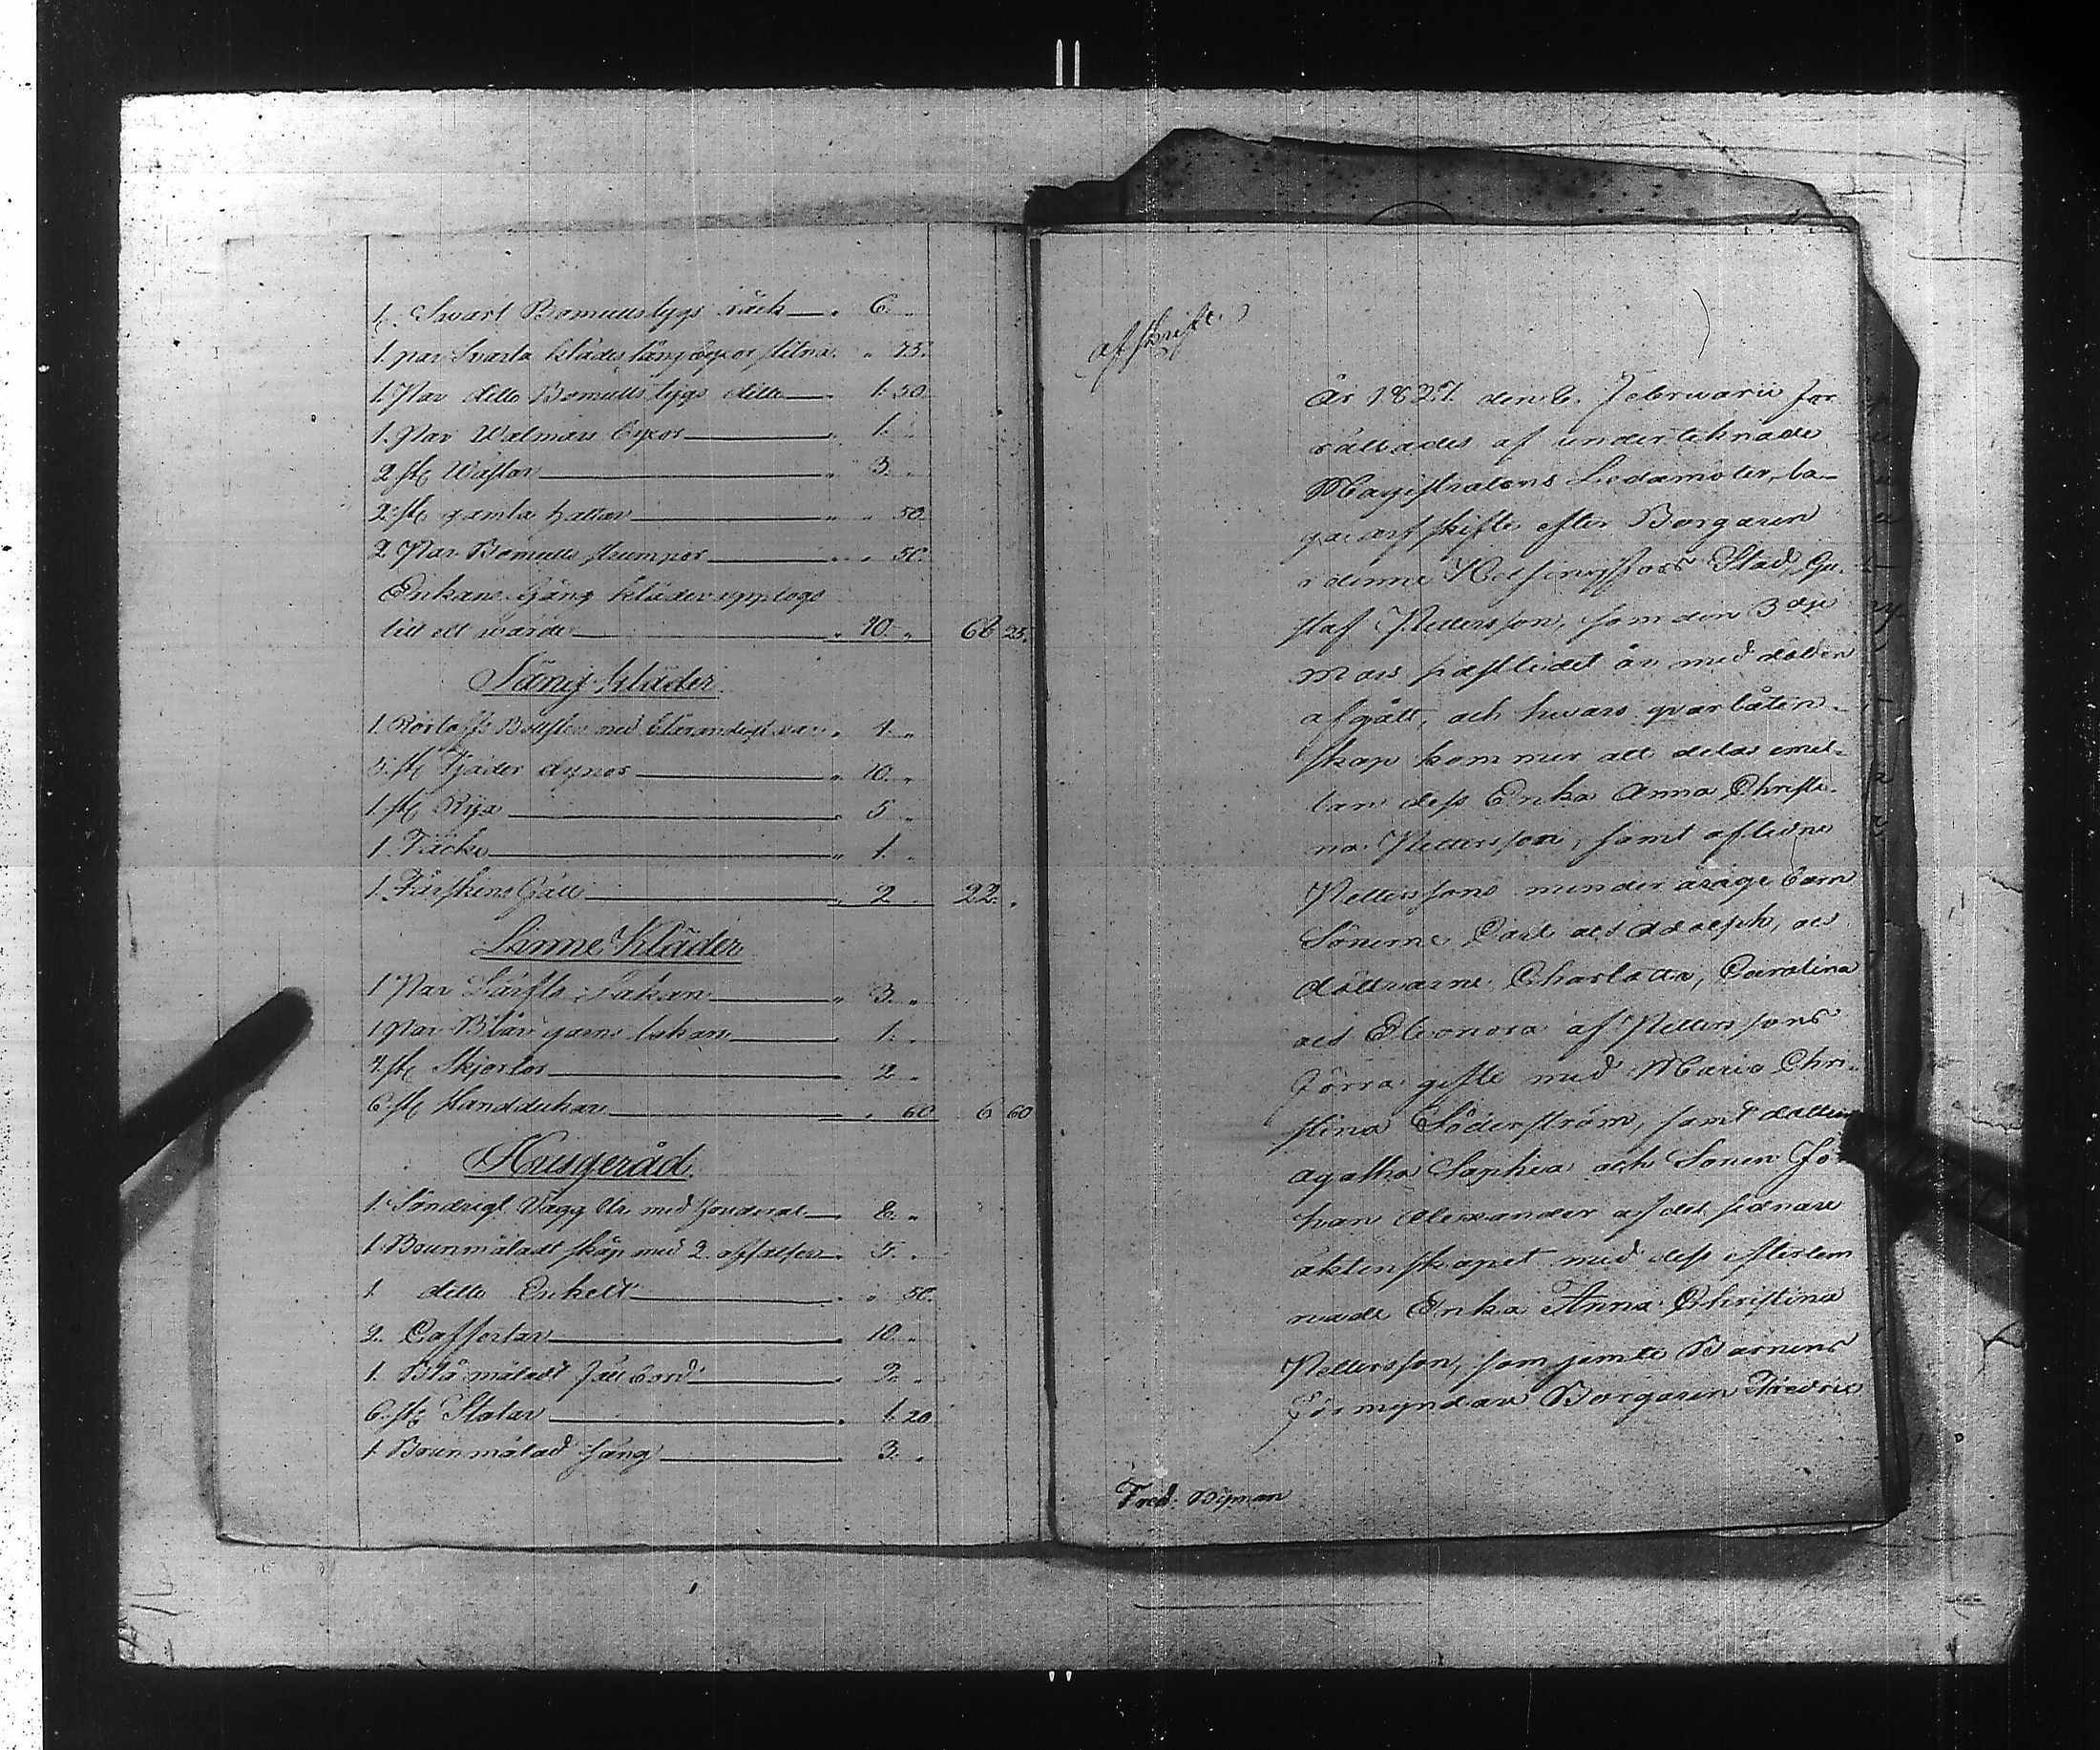 1. Svart Bomullstygs råck — " 6. "
1. par Svarta klädes långbyxor slitna. " 75.
1. Par ditto Bomulls tygs ditto — " 1. 50.
1. Par Walmars byxor — " 1. "
2 st Wästar — " 3. "
2 st gamla hattar — " " 50
2 Par Bomulls strumpor — " " 50.
Enkans Gång kläder upptogs
till ett wärde — " 10. " 66 25.
Säng kläder
1. Bolster med blårandigt var " 4. "
5. st Fjäder dynor — " 10. "
1. st Rya — " 5 "
1. Täcke — " 1. "
1. Fårskins Fäll — " 2 " 22. "
Linne Kläder
1 Par Lärfts Lakan — " 3. "
1 Par Blår garns lakan — " 1. "
4. st Skjortor — " 2 "
6. st Handdukar — " 60 6 60
Husgeråd
1. Söndrigt Vägg Ur med foudral — " 8. "
1. Brunmåladt skåp med 2. afsatser — " 5. "
1. ditto Enkelt — " " 50.
2. Coffertar — " 10. "
1. Blå måladt fäll bord — " 2. "
6. st Stolar — " 1. 20
1. Brunmålad säng — " 3. "
afskrift
År 1827. den 6. Februarii för
rättades af undertecknade
Magistratens Ledamöter, la-
ga arfskifte efter Borgaren
i denne Helsingfors Stad, Gu-
staf Pettersson, som den 3dje
Mars sistledet år med döden
afgått, och hwars qvarlåten-
skap kommer att delas emel-
lan dess Enka Anna Christi-
na Pettersson, samt aflidne
Petterssons minderårige barn
Sönerne Carl och Adolph, och
döttrarne Charlotta, Carolina
och Eleonora af Petterssons
förra gifte med Maria Chri-
stina Söderström, samt dottren
Agatha Sophia och Sonen Jo-
han Alexander af det sednare
äktenskapet med dess efterlem
nade Enka Anna Christina
Pettersson, som jemte Barnens
Förmyndare Borgaren Fredric
Fred. Nyman